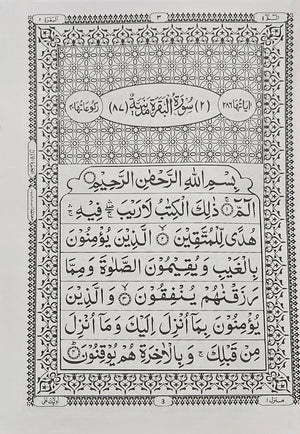 البقرة ٢
٣
الٓمّٓ ١
اٰيَاتُهَا ٢٨٦
(٢) سُوْرَةُ الْبَقَرَةِ مَدَنِيَّةٌ (٨٧)
رُكُوْعَاتُهَا ٤٠
بِسْمِ اللهِ الرَّحْمٰنِ الرَّحِيْمِ
الٓمّٓ ۚ ١ ذٰلِكَ الْكِتٰبُ لَا رَيْبَ ۛ فِيْهِ ۛ
هُدًى لِّلْمُتَّقِيْنَ ٢ الَّذِيْنَ يُؤْمِنُوْنَ
بِالْغَيْبِ وَ يُقِيْمُوْنَ الصَّلٰوةَ وَ مِمَّا
رَزَقْنٰهُمْ يُنْفِقُوْنَ ٣ وَ الَّذِيْنَ
يُؤْمِنُوْنَ بِمَاۤ اُنْزِلَ اِلَيْكَ وَ مَاۤ اُنْزِلَ
مِنْ قَبْلِكَ ۚ وَ بِالْاٰخِرَةِ هُمْ يُوْقِنُوْنَ ٤
منزل ١
3